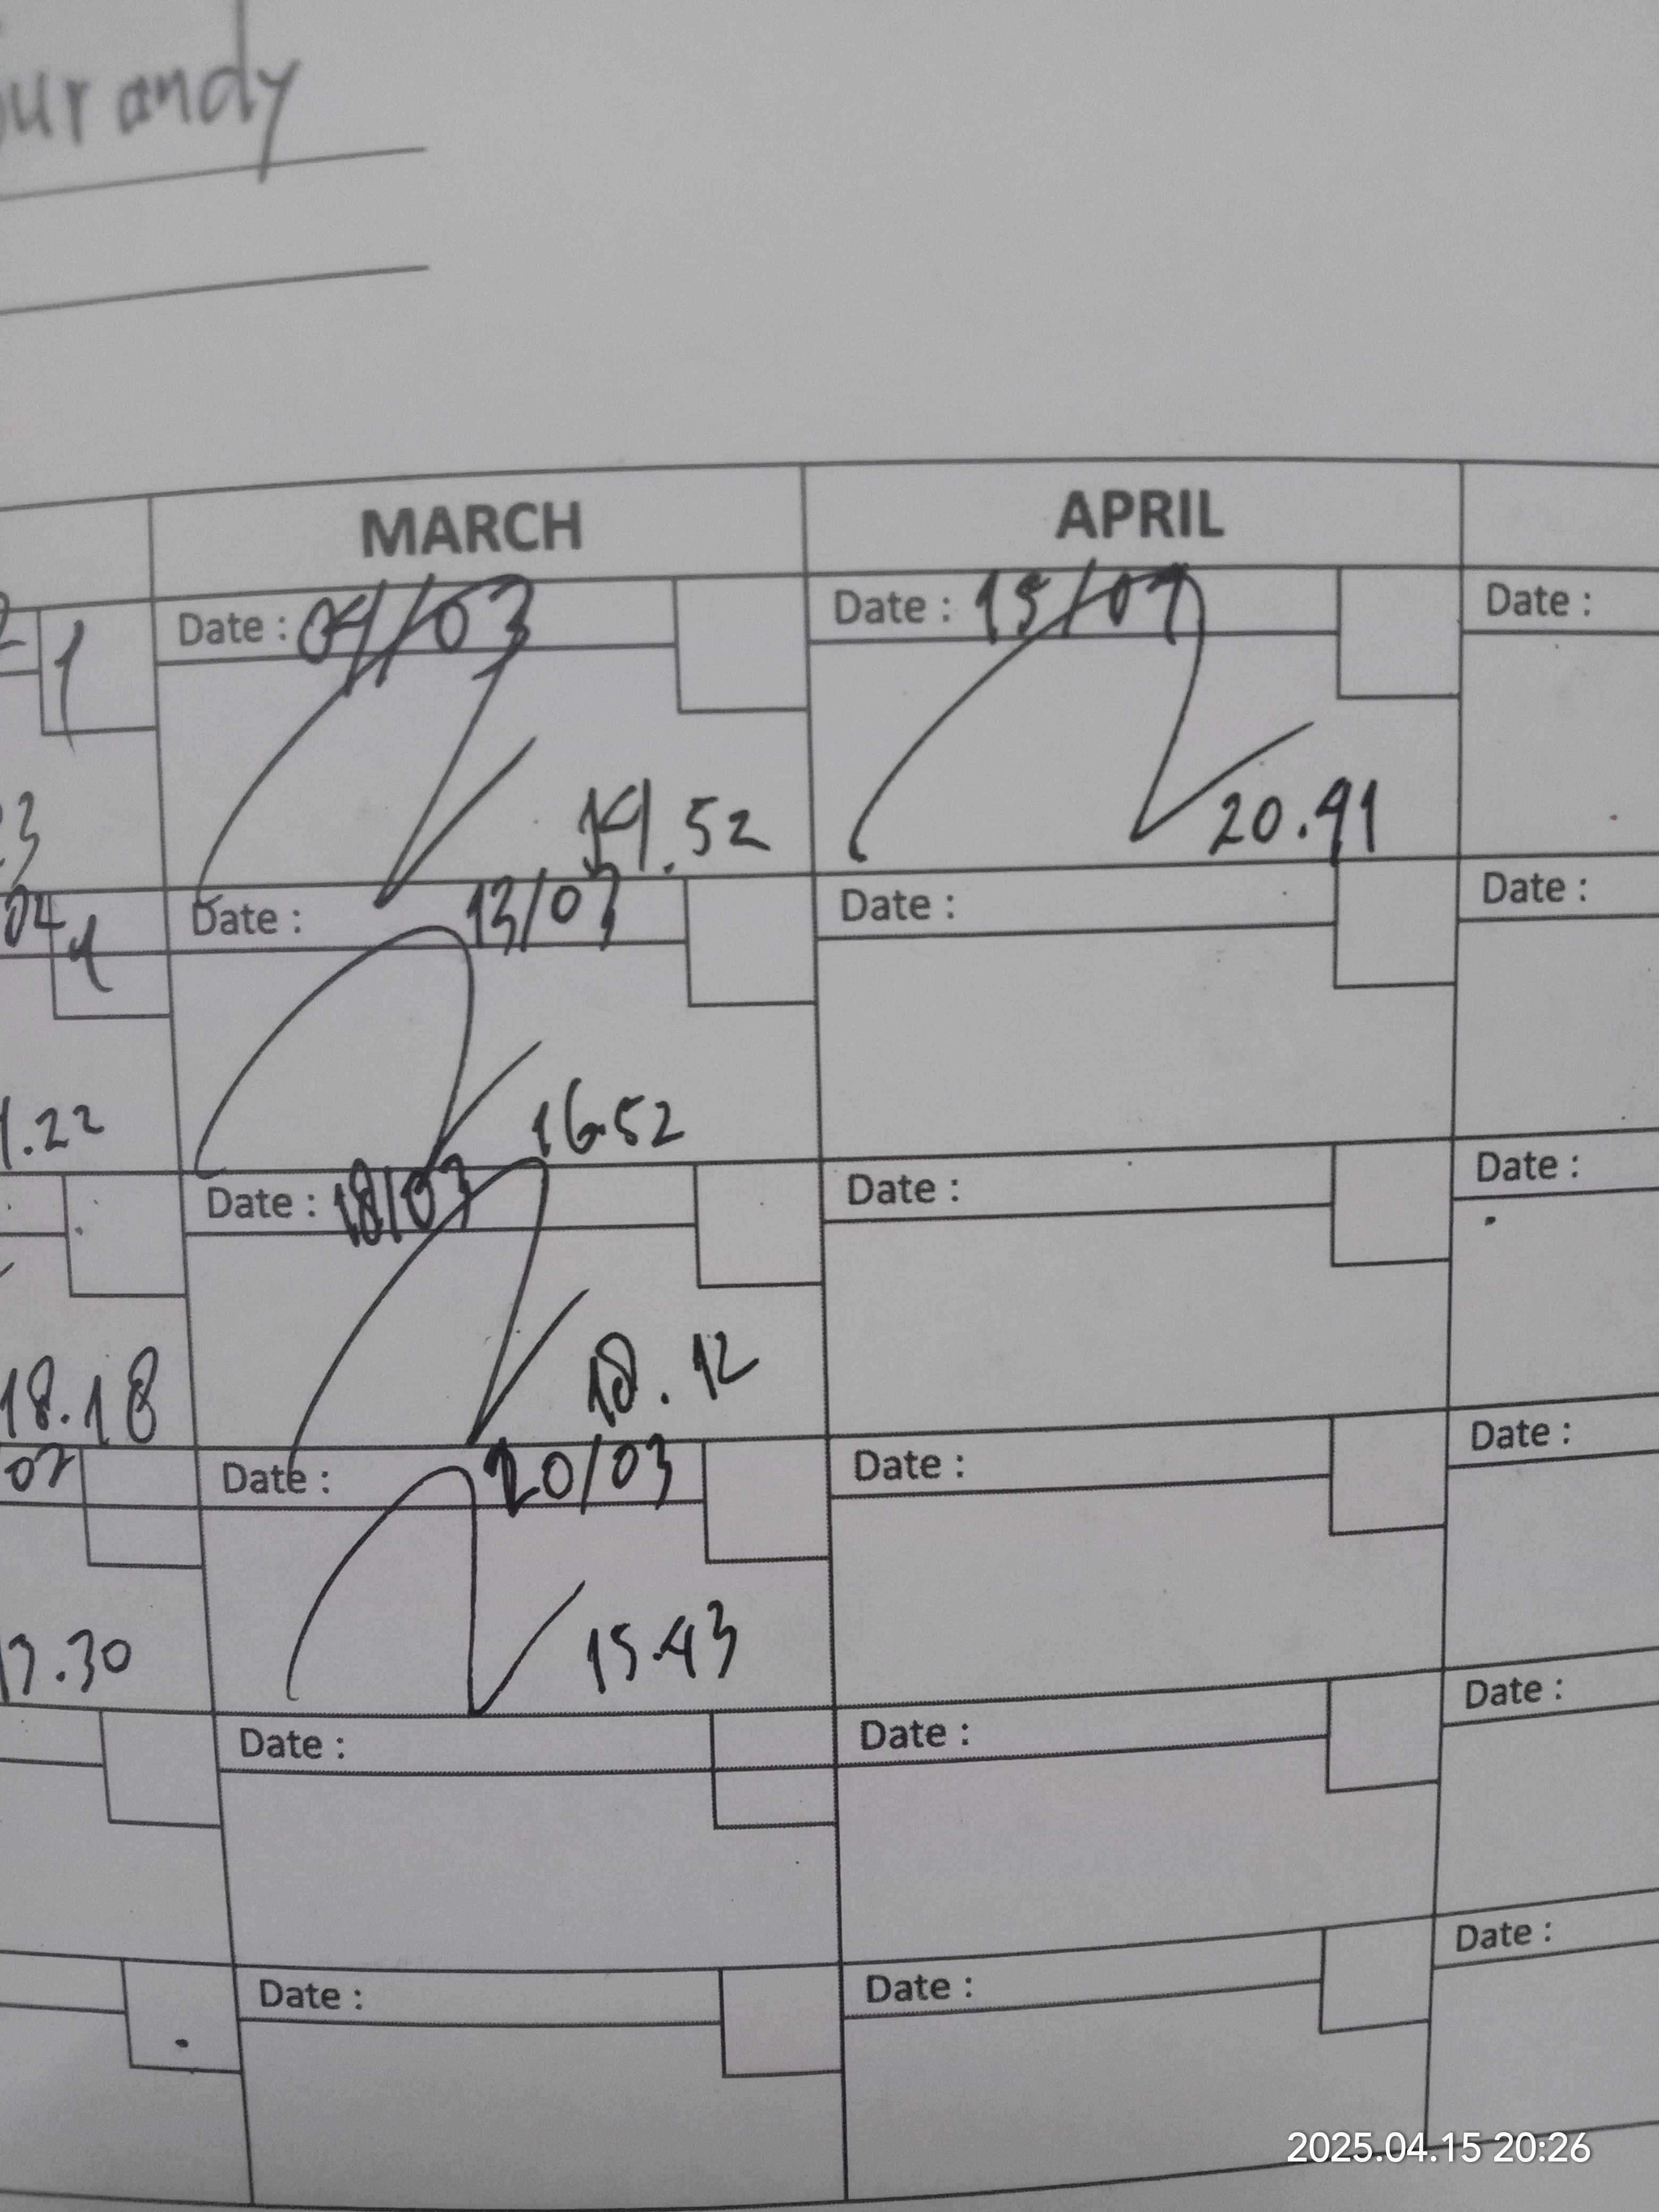 urandy
MARCH
APRIL
1
Date : 04/03
Date : 15/04
Date :
3
14.52
20.41
04
1
Date : 13/03
Date :
Date :
1.22
16.52
Date : 18/03
Date :
Date :
18.18
18.12
02
Date : 20/03
Date :
Date :
13.30
15.43
Date :
Date :
Date :
Date :
Date :
Date :
2025.04.15 20:26